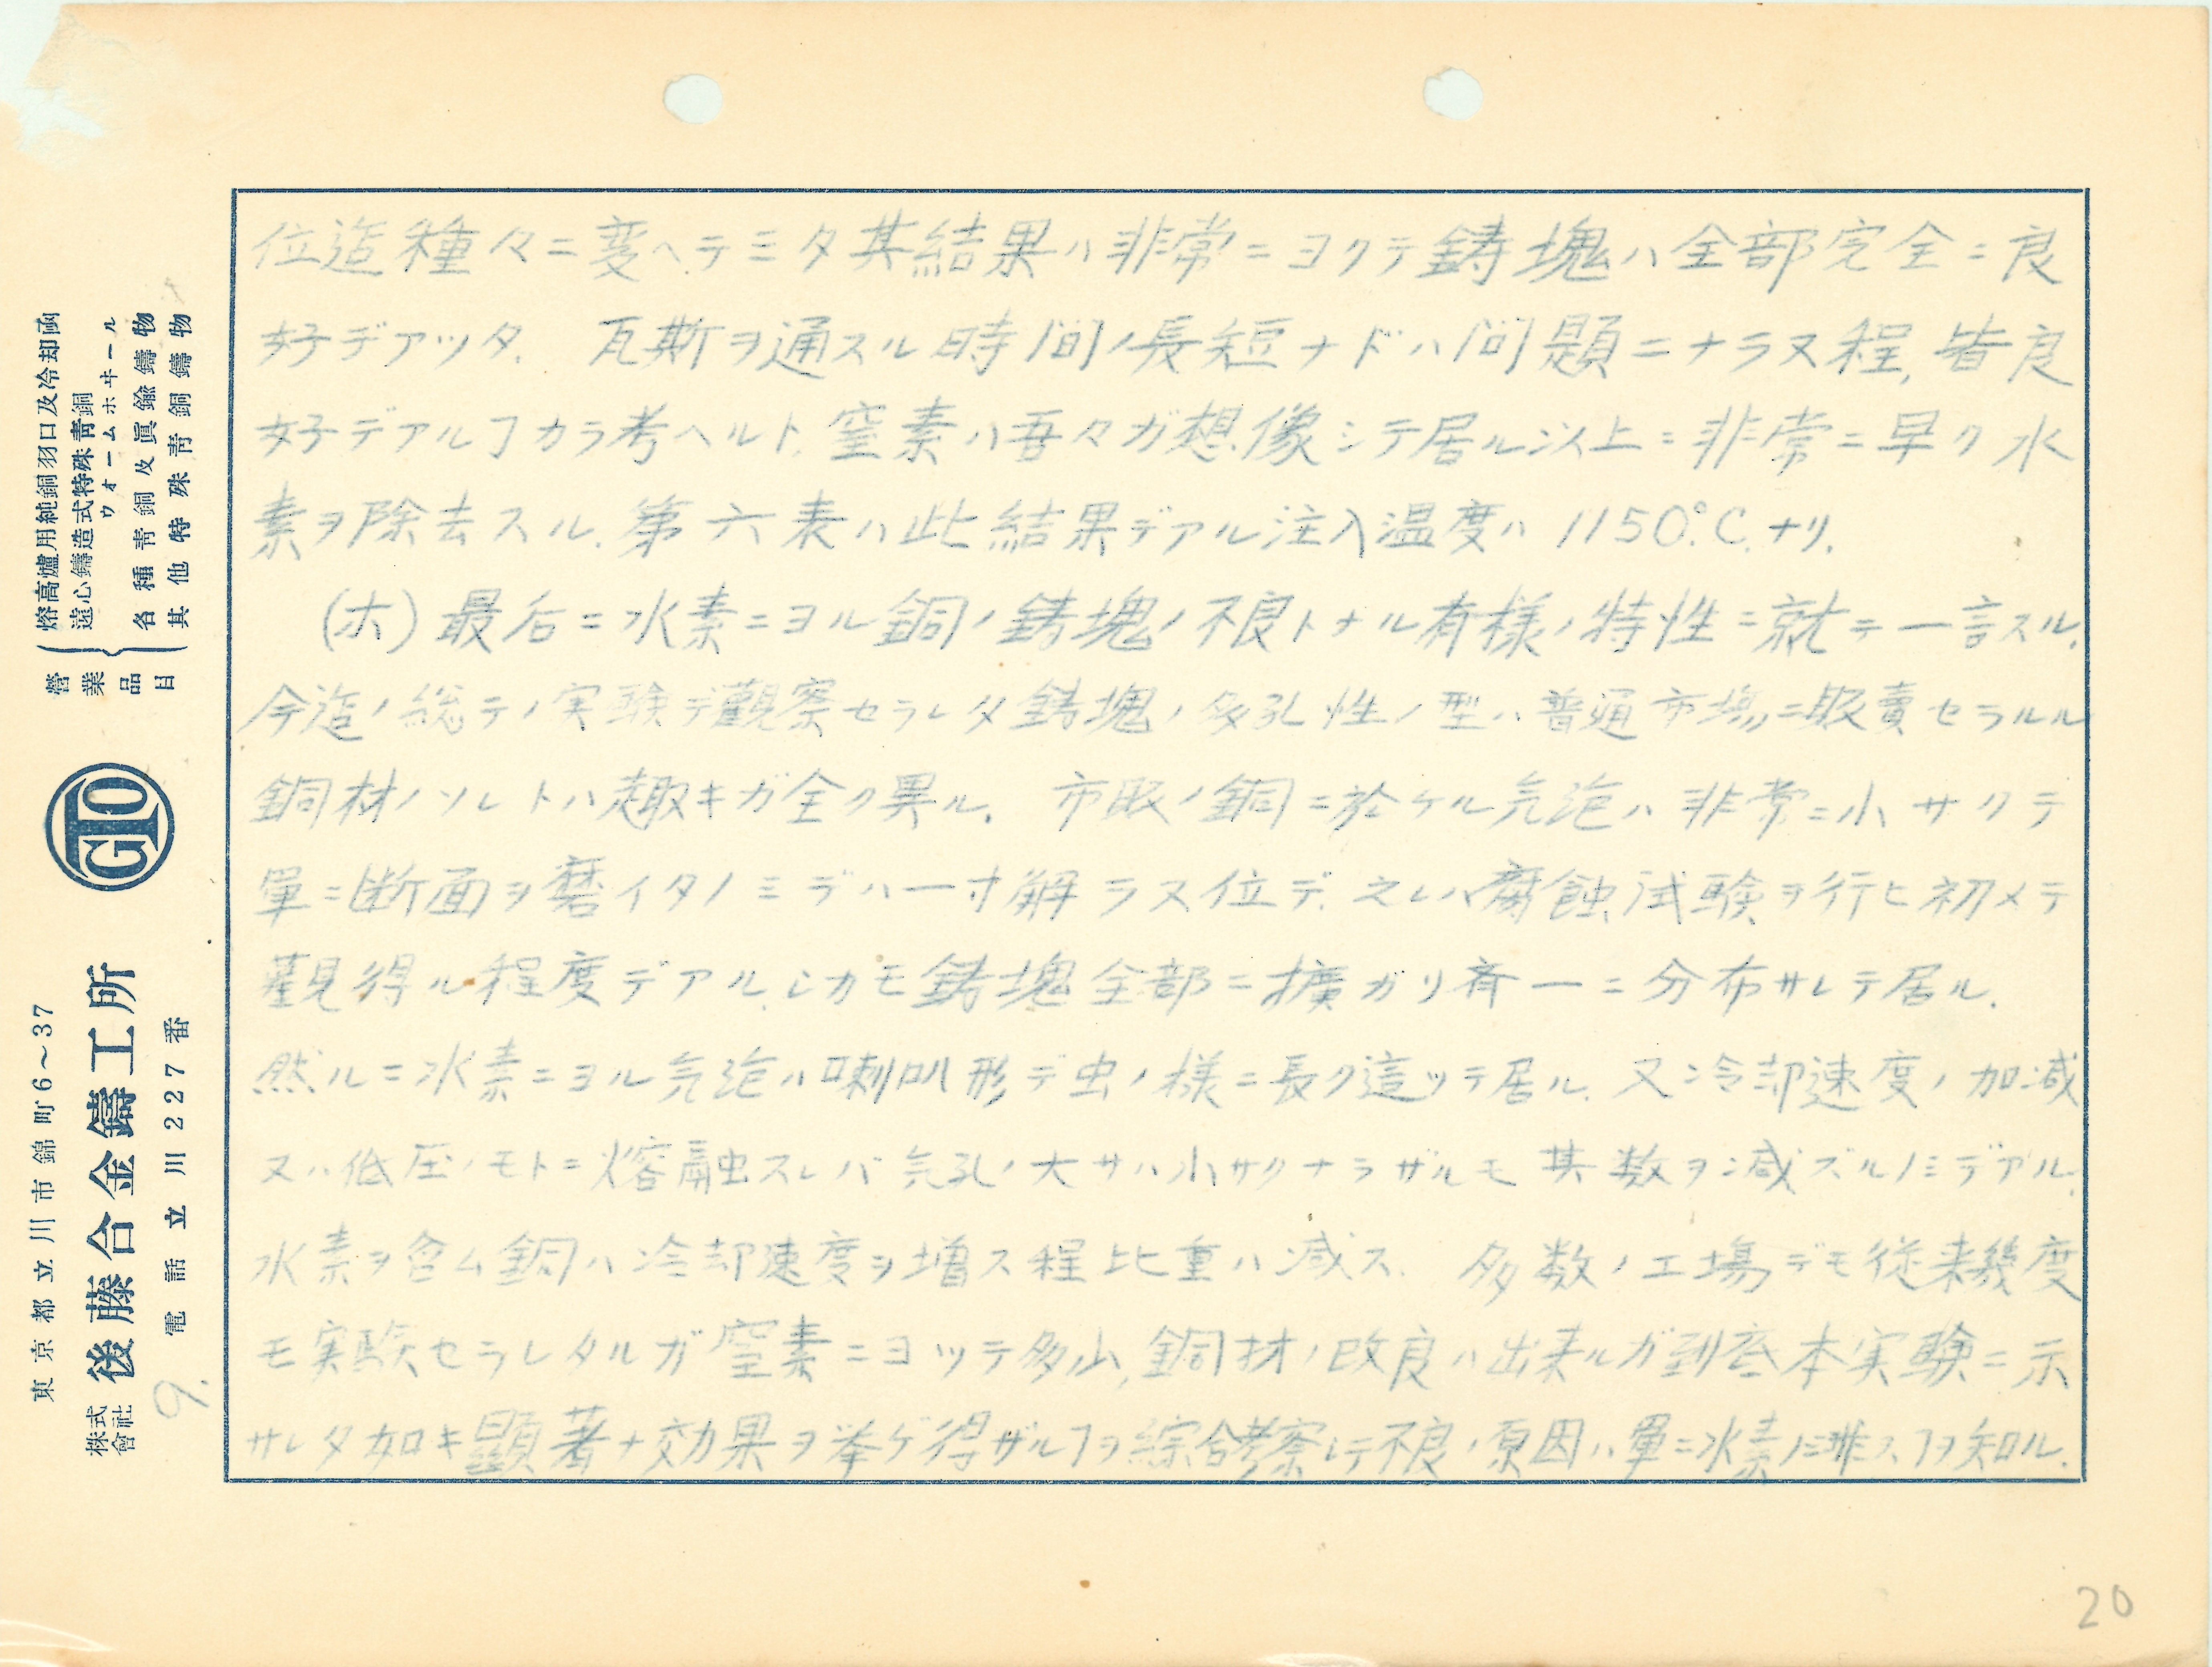 位迄種々ニ変ヘテミタ其結果ハ非常ニヨクテ鋳塊ハ全部完全ニ良
好デアッタ. 瓦斯ヲ通スル時間ノ長短ナドハ問題ニナラヌ程,皆良
好デアルヿカラ考ヘルト,窒素ハ吾々ガ想像シテ居ル以上ニ非常ニ早ク水
素ヲ除去スル.第六表ハ此結果デアル注入温度ハ1150°C.ナリ.
(ホ)最后ニ水素ニヨル銅ノ鋳塊ノ不良トナル有様ノ特性ニ就テ一言スル.
今迄ノ総テノ実験デ観察セラレタ鋳塊ノ多孔性ノ型ハ普通市場ニ販賣セラルル
銅材ノソレトハ趣キガ全ク異ル. 市販ノ銅ニ於ケル気泡ハ非常ニ小サクテ
単ニ断面ヲ磨イタノミデハ一寸解ラヌ位デ.之レハ腐蝕試験ヲ行ヒ初メテ
観得ル程度デアル.シカモ鋳塊全部ニ擴ガリ斉一ニ分布サレテ居ル.
然ルニ水素ニヨル気泡ハ喇叭形デ虫ノ様ニ長ク這ッテ居ル.又冷却速度ノ加減
又ハ低圧ノモトニ熔融スレバ気孔ノ大サハ小サクナラザルモ其数ヲ減ズルノミデアル.
水素ヲ含ム銅ハ冷却速度ヲ増ス程比重ハ減ス. 多数ノ工場デモ従来幾度
モ実験セラレタルガ窒素ニヨッテ多少,銅材ノ改良ハ出来ルガ到底本実験ニ示
サレタ如キ顕著ナ効果ヲ挙ゲ得ザルヿヲ綜合考察シテ不良ノ原因ハ単ニ水素ノミニ非スヿヲ知ル.
營業品目
熔高爐用純銅羽口及冷却函
遠心鑄造式特殊青銅
ウオームホヰール
各種青銅及眞鍮鑄物
其他特殊青銅鑄物
GTO
東京都立川市錦町6~37
株式會社 後藤合金鑄工所
電話 立川 227番
9.
20